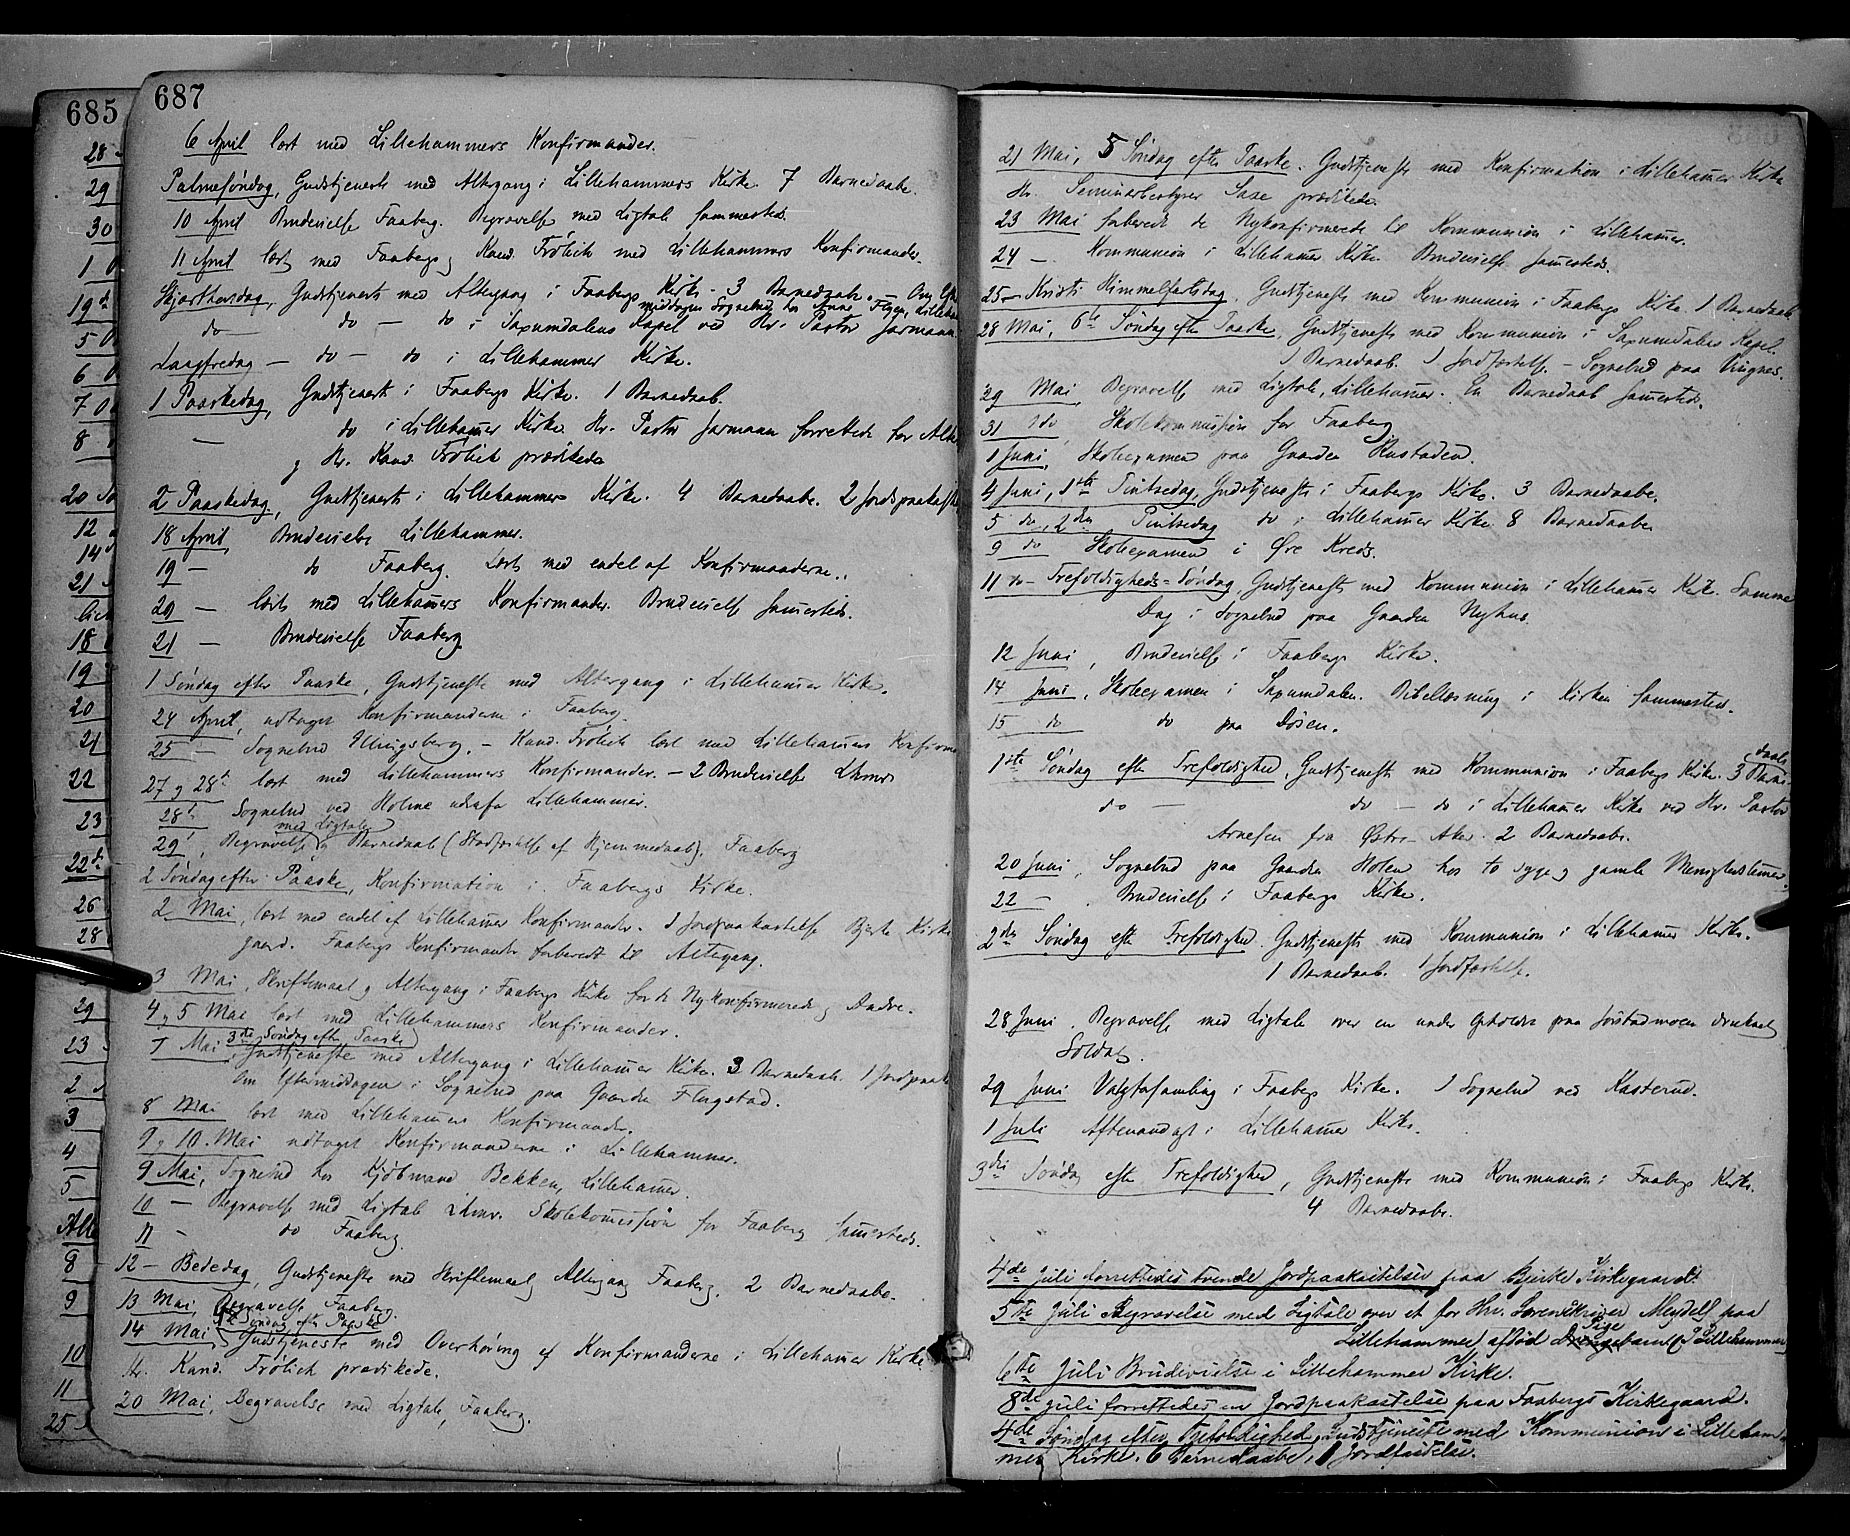 685
687
6 April læst med Lillehammers Konfirmander.
Palmesøndag, Gudstjeneste med Altergang i Lillehammers Kirke 7 Barnedaabe.
10 April Brudevielse Faaberg. Begravelse med Ligtale sammesteds.
11 April læst med Faabergs og Kand. Frölich med Lillehammers Konfirmander.
Skjærthorsdag, Gudstjeneste med Altergang i Faabergs Kirke - 3 Barnedaabe. - Om Efter
middagen Sognebud hos Lillehammer
do — do — do i Saxumdalens Kapel ved Hr. Pastor Jarmann
Langfredag — do — do i Lillehammer Kirke.
1 Paaskedag, Gudstjeneste i Faabergs Kirke. 1 Barnedaab.
— do i Lillehamer Kirke. Hr. Pastor Jarmann forrettede for Alter
og Hr. Kand. Frölich prædikede
2 Paaskedag, Gudstjeneste i Lillehammers Kirke. 4 Barnedaabe. 2 Jordpaakastelser
18 April Brudevielse Lillehammer.
19 — do Faaberg. Læst med endel af Konfirmanderne.
20 — læst med Lillehamers Konfirmander. Brudevielse samesteds.
21 — Brudevielse Faaberg
1 Søndag efter Paaske, Gudstjeneste med Altergang i Lillehamer Kirke.
24 April, udtaget Konfirmanderne i Faaberg.
25 — Sognebud Ullingsberg. - Kand. Frölich læst med Lillehamers Konfirm
27 og 28de læst med Lillehammers Konfirmander. - 2 Brudevielse Lhmr
28de Sognebud ved Holme udenfor Lillehammer.
med Ligtale
29', Begravelse og Barnedaab (Stadfæstelse af Hjemmedaab). Faaberg
2 Søndag efter Paaske, Konfirmation i Faabergs Kirke.
2 Mai, læst med endel af Lillehamer Konfirmander. 1 Jordpaakastelse Bjerke Kirke
gaard. Faabergs Konfirmander forberedt til Altergang.
3 Mai, Skriftemaal og Altergang i Faabergs Kirke for de Nykonfirmerede og Andre.
4 og 5 Mai læst med Lillehammers Konfirmander.
3die Søndag efter Paaske
7 Mai, Gudstjeneste med Altergang i Lillehamer Kirke. 3 Barnedaab. 1 Jordpaak
Om Eftermiddagen i Sognebud paa Gaarden Flugstad.
8 Mai læst med Lillehamers Konfirmander.
9 og 10. Mai udtaget Konfirmanderne i Lillehammer.
9 Mai, Sognebud hos Kjøbmand Bekken, Lillehamer.
10 — Begravelse med Ligtale Lhmr. Skolekomission for Faaberg samesteds.
11 — do Faaberg
12 — Bededag, Gudstjeneste med Skriftemaal Altergang Faaberg. 2 Barnedaabe.
13 Mai, Begravelse Faaberg.
4de Søndag efter Paaske
14 Mai, Gudstjeneste med Overhøring af Konfirmanderne i Lillehamer Kirke
Hr. Kand. Frölich prædikede.
20 Mai, Begravelse med Ligtale, Faaberg.
21 Mai, 5 Søndag efter Paaske. Gudstjeneste med Konfirmation i Lillehamer Kirke
Hr. Seminarbestyrer Saxe prædikede.
23 Mai forberedt de Nykonfirmerede til Kommunion i Lillehamer.
24 — Kommunion i Lillehamer Kirke. Brudevielse samesteds.
25 — Kristi Himmelfartsdag. Gudstjeneste med Kommunion i Faabergs Kirke. 1 Barnedaab
28 Mai, 6te Søndag efter Paaske, Gudstjeneste med Kommunion i Saxumdalens Kapel.
1 Barnedaab. 1 Jordfæstelse. - Sognebud paa Vingnes.
29 Mai, Begravelse med Ligtale, Lillehamer. En Barnedaab samesteds.
31 do Skolekommission for Faaberg
1 Juni, Skoleexamen paa Gaarden Rustaden.
4 Juni, 1ste Pintsedag, Gudstjeneste i Faabergs Kirke. 3 Barnedaabe.
5 do, 2den Pintsedag do i Lillehamer Kirke 8 Barnedaabe
9 do Skoleexamen i Øre Kreds.
11 do - Trefoldigheds-Søndag, Gudstjeneste med Kommunion i Lillehamer Kirke. Samme
Dag i Sognebud paa Gaarden Nyhus.
12 Juni, Brudevielse i Faabergs Kirke.
14 Juni, Skoleexamen i Saxumdalen. Bibellæsning i Kirken sammesteds.
15 do do paa Døsen.
1ste Søndag efter Trefoldighed, Gudstjeneste med Kommunion i Faabergs Kirke. 3 Barne-
daabe
do — do — do i Lillehamer Kirke ved Hr. Pastor
Arnesen fra Østre Aker. 2 Barnedaabe.
20 Juni, Sognebud paa Gaarden Holen hos to syge og gamle Menighedslemer.
22 — , Brudevielse i Faabergs Kirke.
2den Søndag efter Trefoldighed. Gudstjeneste med Kommunion i Lillehamer Kirke.
1 Barnedaab. 1 Jordfæstelse.
28 Juni. Begravelse med Ligtale over en under Opholdet paa Jørstadmoen druknet
Soldat.
29 Juni Valgforsamling i Faabergs Kirke. 1 Sognebud ved Kasterud.
1 Juli Aftenandagt i Lillehamer Kirke.
3die Søndag efter Trefoldighed, Gudstjeneste med Kommunion i Faabergs Kirke.
4 Barnedaabe.
4de Juli forrettedes trende Jordpaakastelser paa Bjerke Kirkegaard
5te Juli Begravelse med Ligtale over et for Hr. Sorenskriver Meydell paa
Lillehammer afdød Drengebarn Pige i Lillehammer
6te Juli Brudevielse i Lillehammer Kirke.
8de Juli forrettedes en Jordpaakastelse paa Faabergs Kirkegaard.
4de Søndag efter Trefoldighed, Gudstjeneste med Kommunion i Lilleham-
mer Kirke. 6 Barnedaabe, 1 Jordfæstelse.